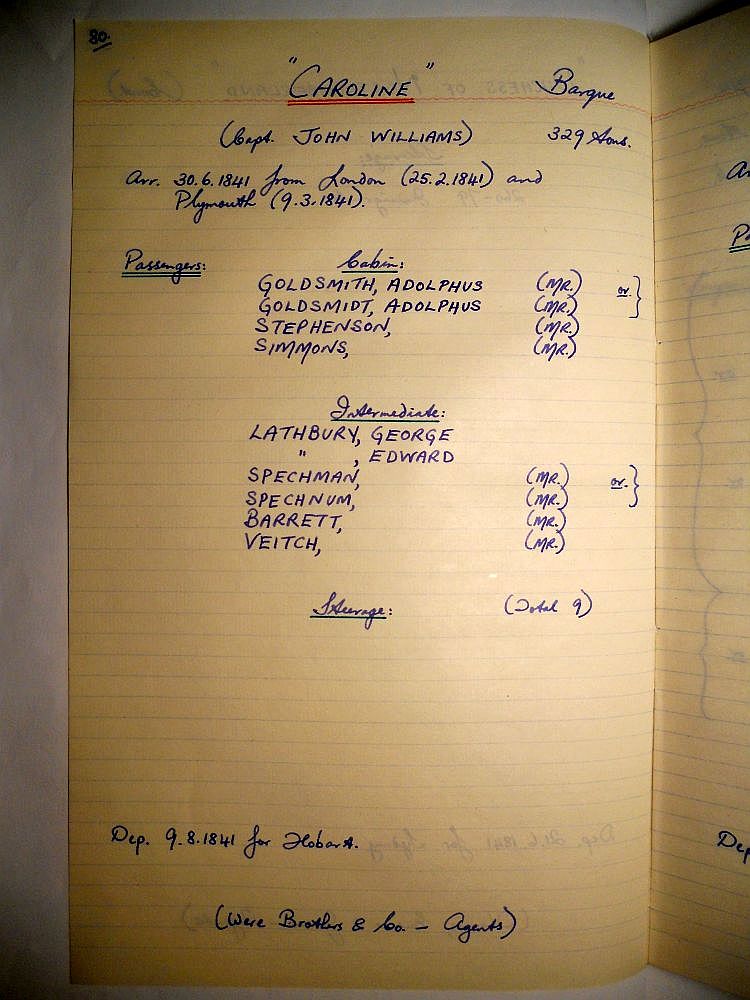 80.
"CAROLINE" Barque
(Capt. JOHN WILLIAMS) 329 tons.
Arr. 30.6.1841 from London (25.2.1841) and
Plymouth (9.3.1841).
Passengers: Cabin:
GOLDSMITH, ADOLPHUS (MR.) or }
GOLDSMIDT, ADOLPHUS (MR.)
STEPHENSON, (MR.)
SIMMONS, (MR.)
Intermediate:
LATHBURY, GEORGE
" , EDWARD
SPECHMAN, (MR.) or. }
SPECHNUM, (MR.)
BARRETT, (MR.)
VEITCH, (MR.)
Steerage: (Total 9)
Dep. 9.8.1841 for Hobart.
(Were Brothers & Co. – Agents)